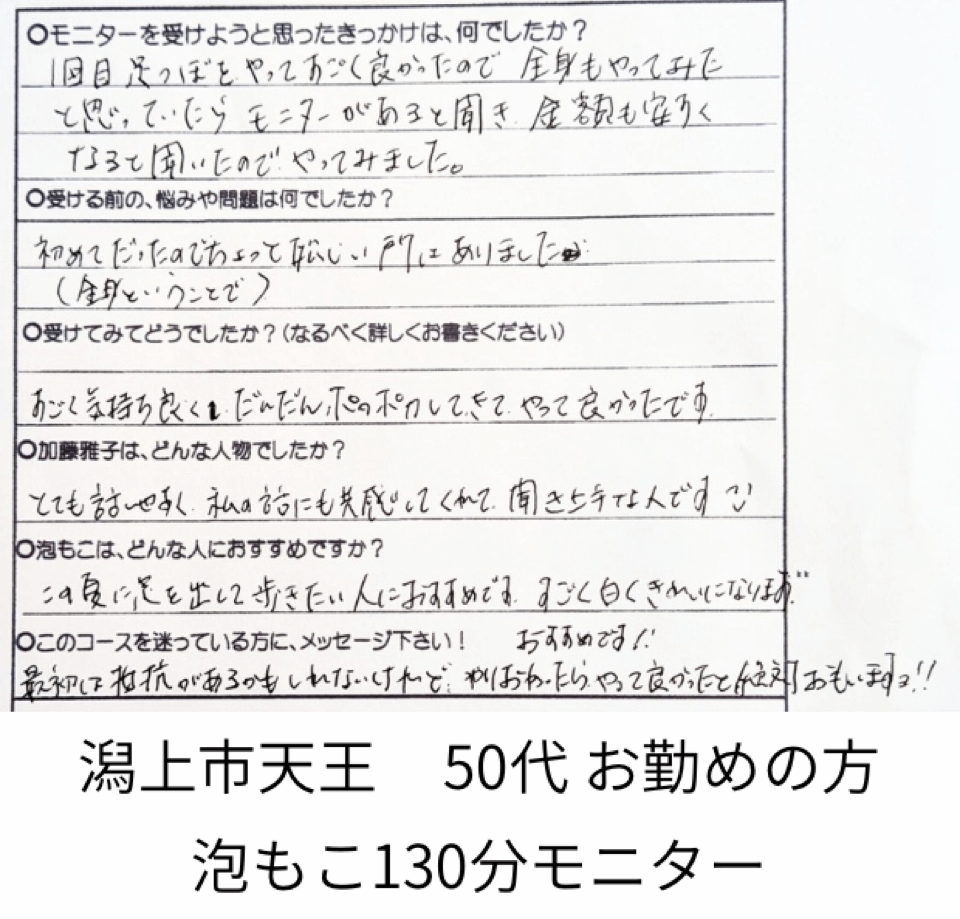 ○モニターを受けようと思ったきっかけは、何でしたか？
1回目足つぼをやってすごく良かったので 全身もやってみた
と思っていたらモニターがあると聞き、金額も安く
なると聞いたのでやってみました。
○受ける前の、悩みや問題は何でしたか？
初めてだったのでちょっと 所にありました
（全身ということで）
○受けてみてどうでしたか？（なるべく詳しくお書きください）
すごく気持ち良く、だんだんポカポカしてきて、やって良かったです
○加藤雅子は、どんな人物でしたか？
とても話しやすく、私の話にも共感してくれて、聞き上手な人です
○泡もこは、どんな人におすすめですか？
この夏に足を出して歩きたい人におすすめです。すごく白くきれいになります
○このコースを迷っている方に、メッセージ下さい！ おすすめです!!
最初は抵抗があるかもしれないけれど、やりおわったら、やって良かったと絶対おもいますヨ!!
潟上市天王 50代 お勤めの方
泡もこ130分モニター